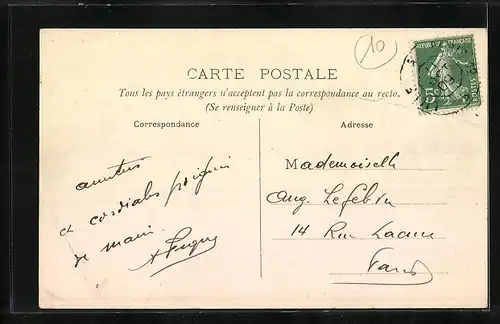 10
REPUBLIQUE FRANÇAISE
CARTE POSTALE
Tous les pays étrangers n'acceptent pas la correspondance au recto.
(Se renseigner à la Poste)
Correspondance
Adresse
amitiés
et cordiales poignées
de main
Mademoiselle
Aug. Lefebvre
14 Rue
Paris